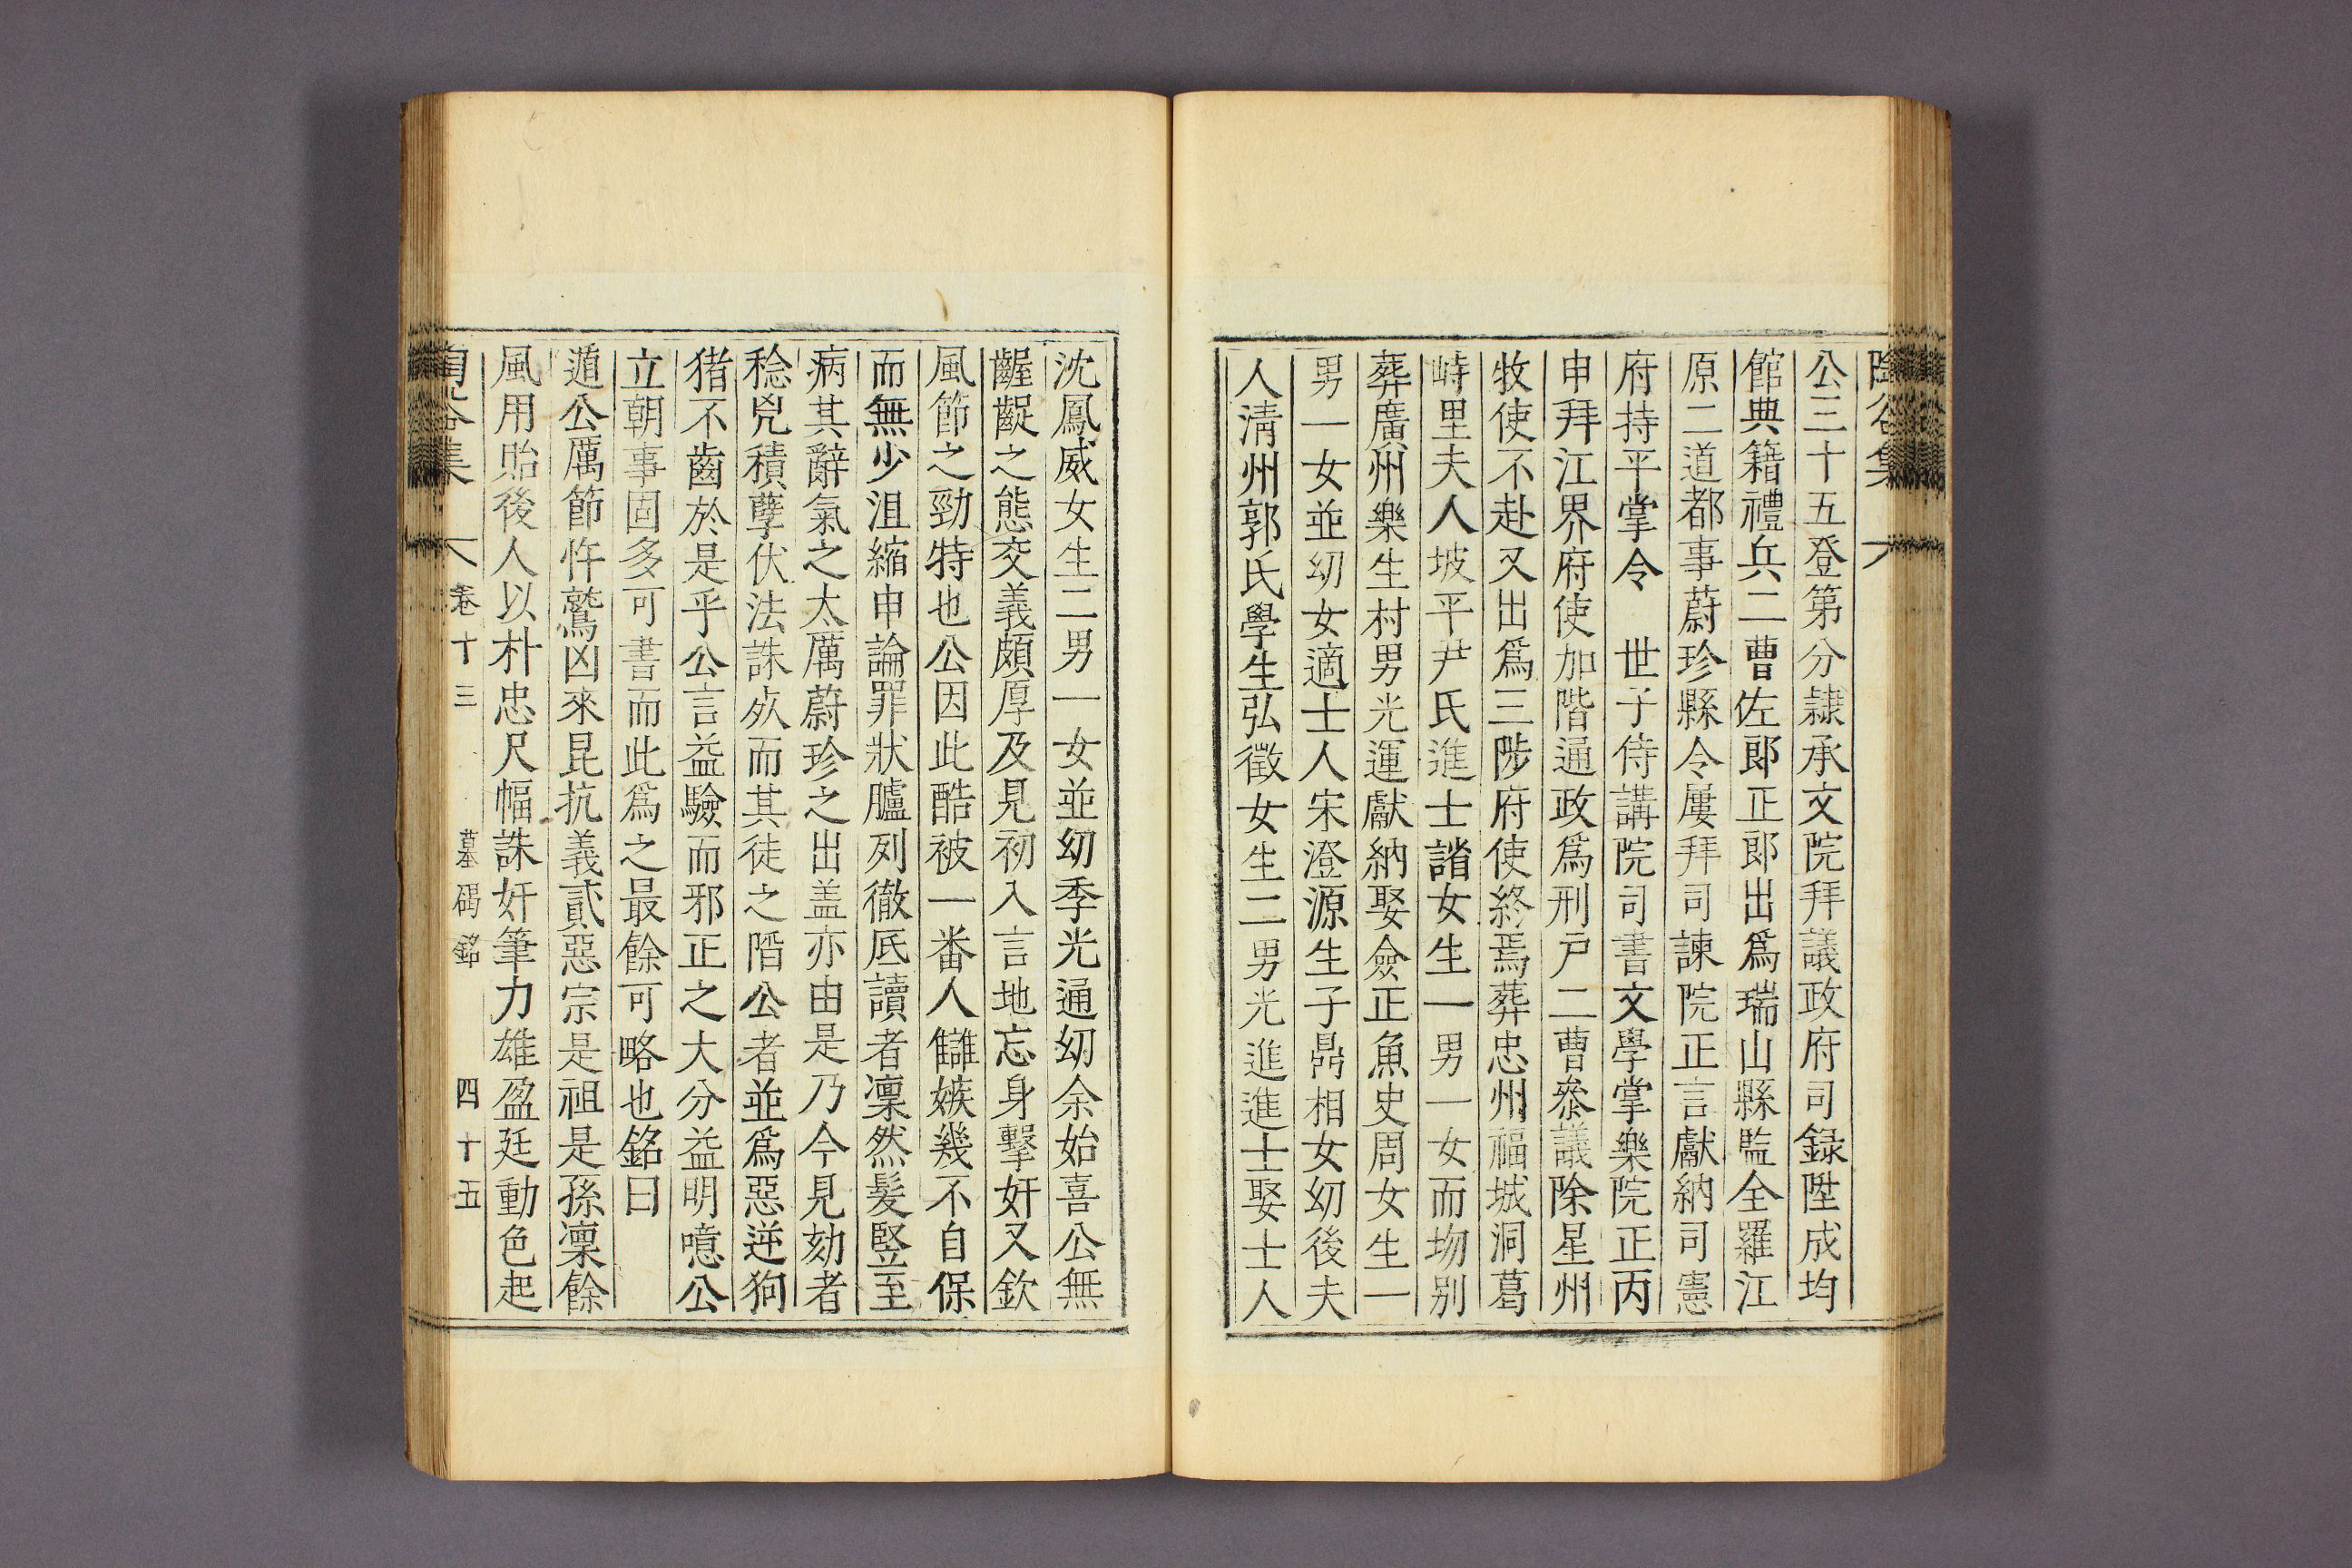 陶谷集
公三十五登第分隷承文院拜議政府司録陞成均
館典籍禮兵二曹佐郎正郎出爲瑞山縣監全羅江
原二道都事蔚珍縣令屢拜司諫院正言獻納司憲
府持平掌令　世子侍講院司書文學掌樂院正丙
申拜江界府使加階通政爲刑戶二曹叅議除星州
牧使不赴又出爲三陟府使終焉葬忠州福城洞葛
峙里夫人坡平尹氏進士諎女生一男一女而坳别
葬廣州樂生村男光運獻納娶僉正魚史周女生一
男一女並幼女適士人宋澄源生子鼎相女幼後夫
人清州郭氏學生弘徵女生二男光進進士娶士人
沈鳳威女生二男一女並幼季光通幼余始喜公無
齷齪之態交義頗厚及見初入言地忘身擊奸又欽
風節之勁特也公因此酷被一番人讎嫉幾不自保
而無少沮縮申論罪狀臚列徹底讀者凜然髮竪至
病其辭氣之太厲蔚珍之出盖亦由是乃今見劾者
稔兇積孽伏法誅死而其徒之階公者並爲惡逆狗
猪不齒於是乎公言益驗而邪正之大分益明噫公
立朝事固多可書而此爲之最餘可略也銘曰
遒公厲節忤鷙凶來昆抗義貳惡宗是祖是孫凜餘
風用貽後人以朴忠尺幅誅奸筆力雄盈廷動色起
陶谷集　卷十三　墓碣銘　四十五